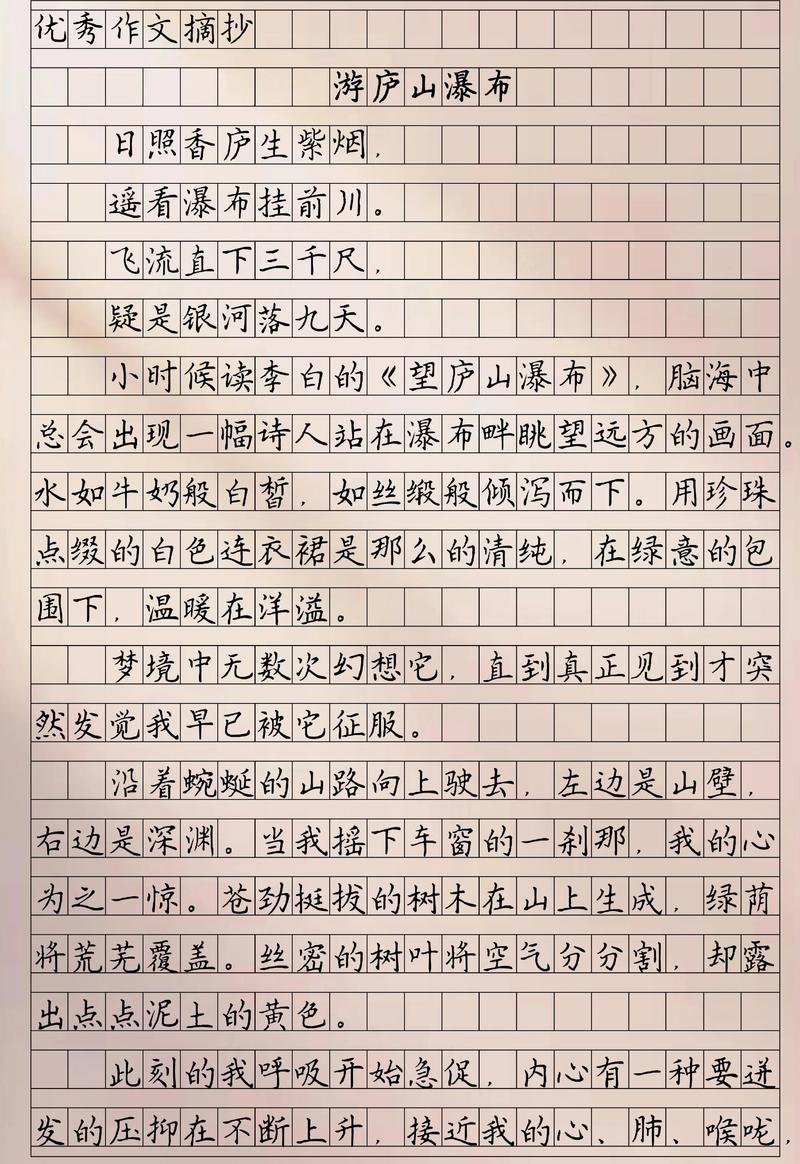 优秀作文摘抄
游庐山瀑布
日照香庐生紫烟，
遥看瀑布挂前川。
飞流直下三千尺，
疑是银河落九天。
小时候读李白的《望庐山瀑布》，脑海中
总会出现一幅诗人站在瀑布畔眺望远方的画面。
水如牛奶般白皙，如丝缎般倾泻而下。用珍珠
点缀的白色连衣裙是那么的清纯，在绿意的包
围下，温暖在洋溢。
梦境中无数次幻想它，直到真正见到才突
然发觉我早已被它征服。
沿着蜿蜒的山路向上驶去，左边是山壁，
右边是深渊。当我摇下车窗的一刹那，我的心
为之一惊。苍劲挺拔的树木在山上生成，绿荫
将荒芜覆盖。丝密的树叶将空气分分割，却露
出点点泥土的黄色。
此刻的我呼吸开始急促，内心有一种要迸
发的压抑在不断上升，接近我的心、肺、喉咙，